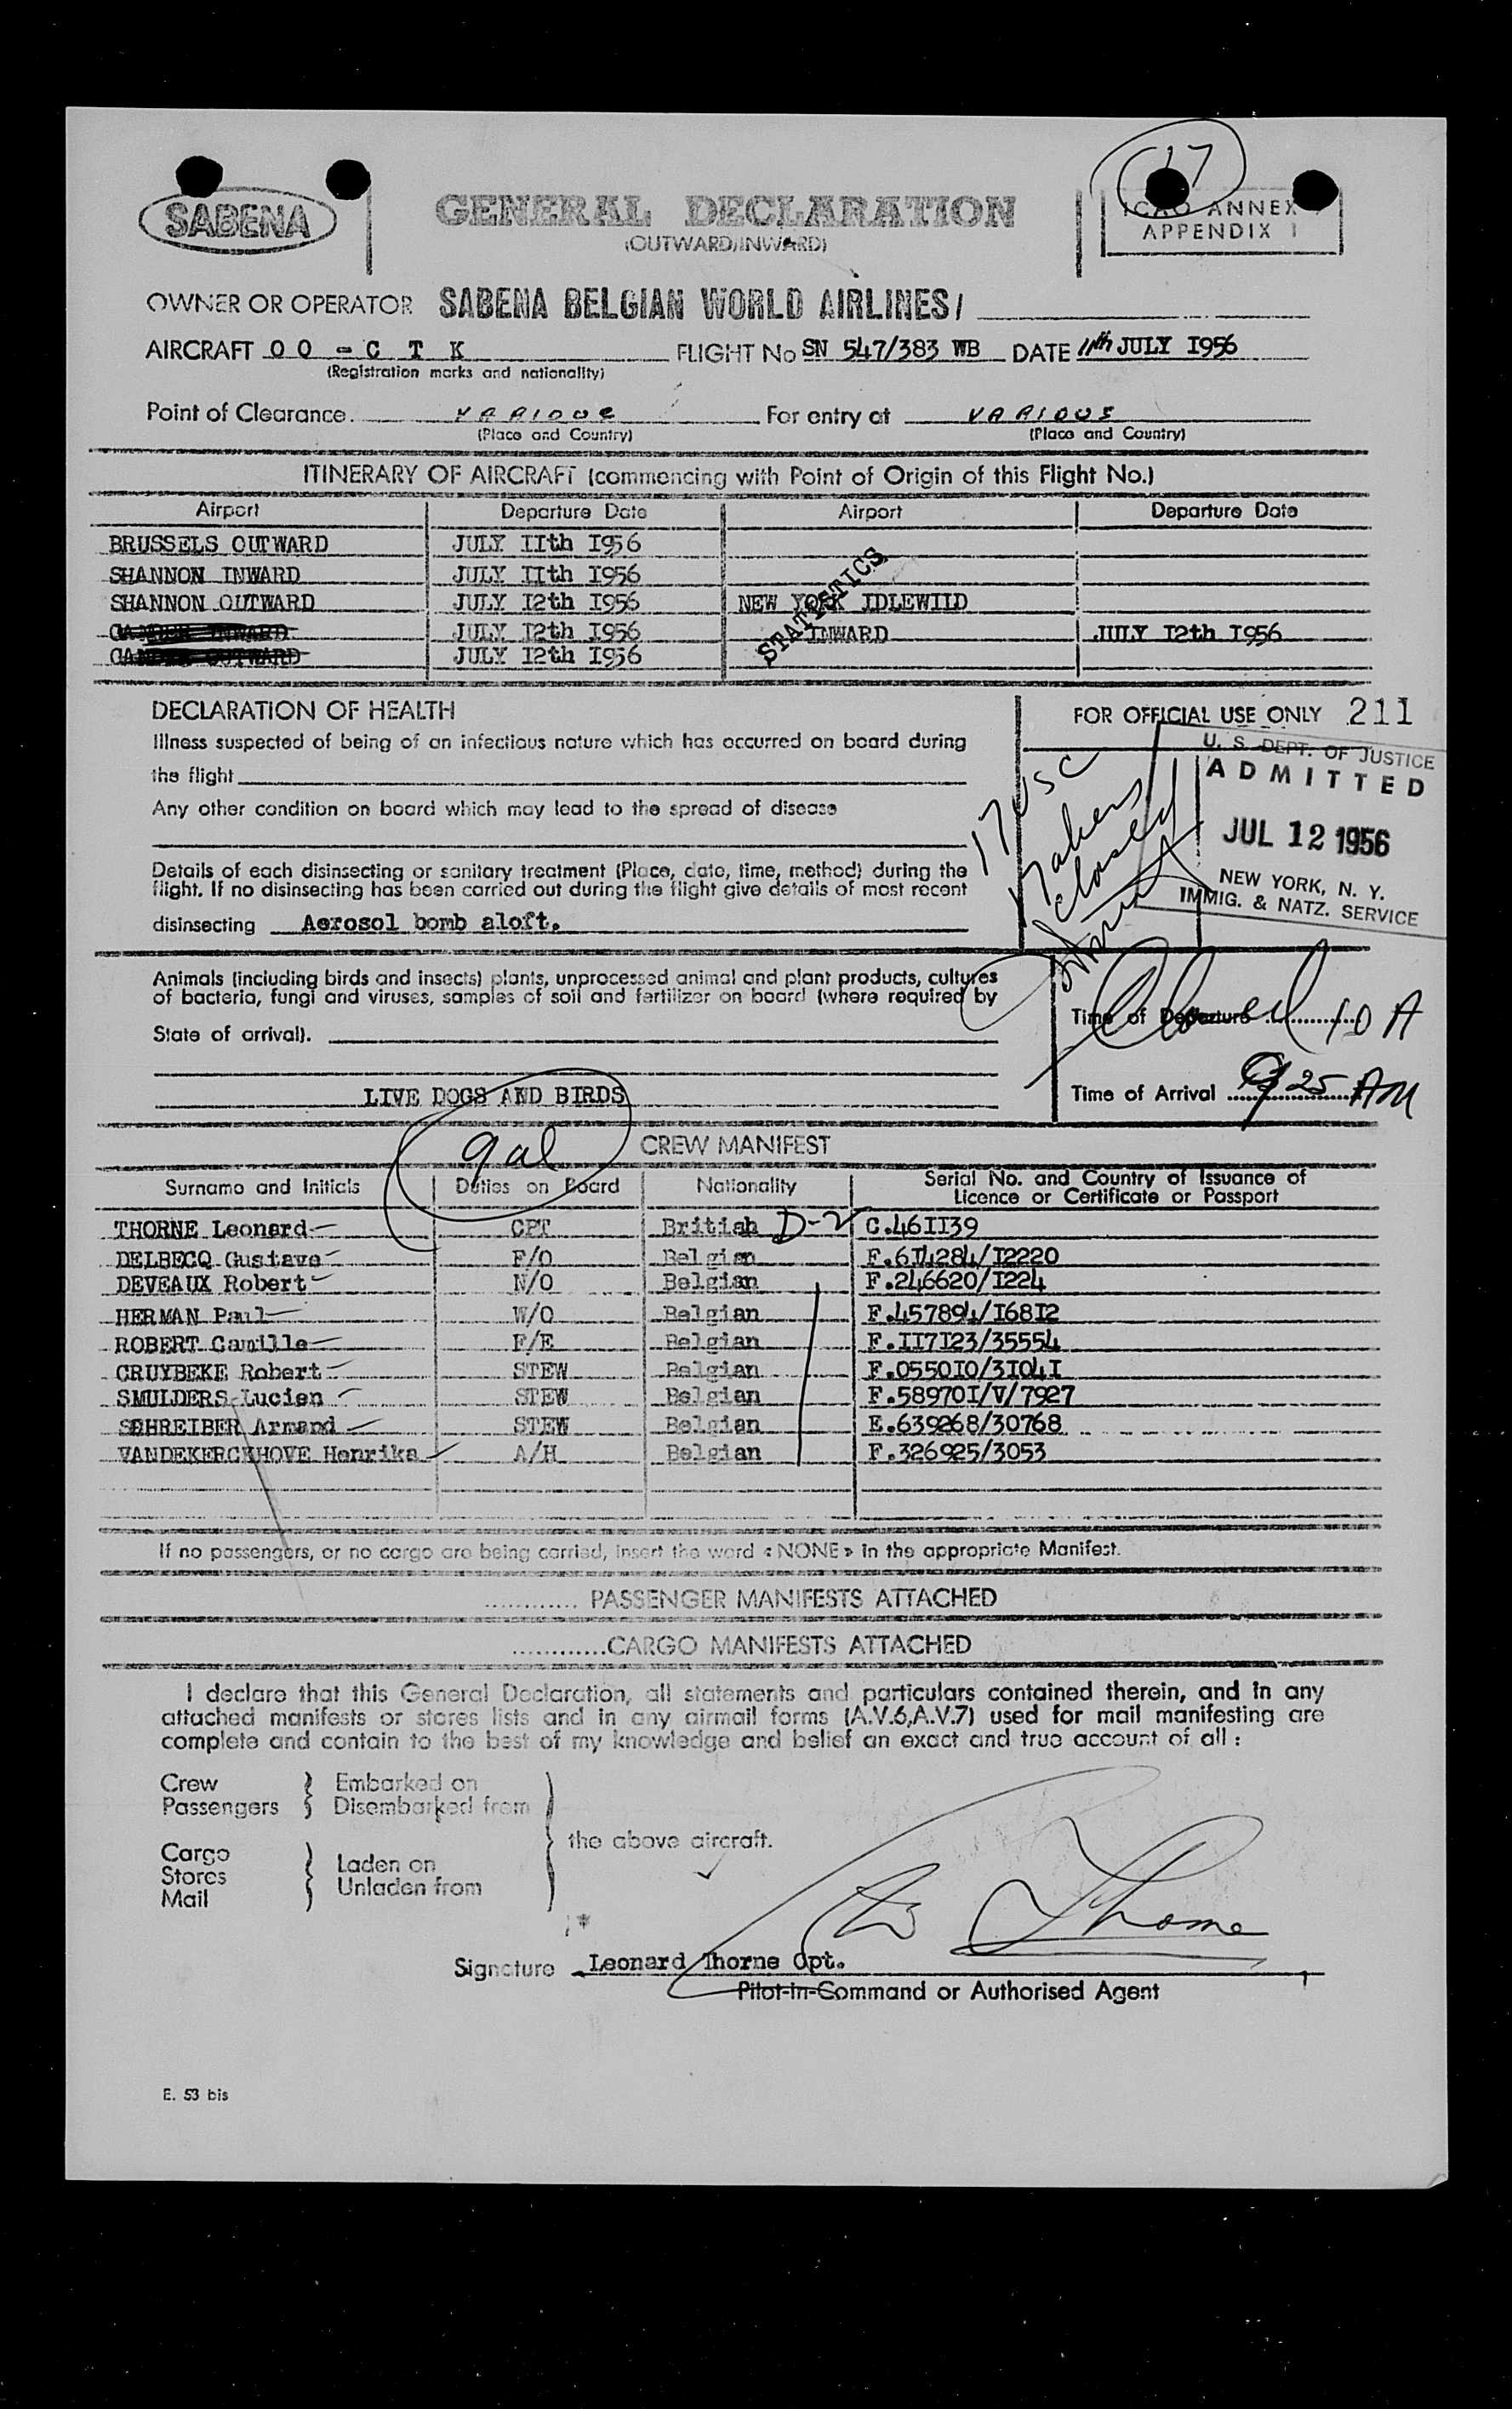 17
SABENA
GENERAL DECLARATION
(OUTWARD/INWARD)
ICAO ANNEX
APPENDIX 1
OWNER OR OPERATOR SABENA BELGIAN WORLD AIRLINES/
AIRCRAFT OO - C T K FLIGHT No SN 547/383 WB DATE 11th JULY I956
(Registration marks and nationality)
Point of Clearance VARIOUS For entry at VARIOUS
(Place and Country) (Place and Country)
ITINERARY OF AIRCRAFT (commencing with Point of Origin of this Flight No.)
Airport Departure Date Airport Departure Date
BRUSSELS OUTWARD JULY IIth I956
SHANNON INWARD JULY IIth I956
SHANNON OUTWARD JULY I2th I956 NEW YORK IDLEWILD
JULY I2th I956 INWARD JULY I2th I956
JULY I2th I956
STATISTICS
DECLARATION OF HEALTH
Illness suspected of being of an infectious nature which has occurred on board during
the flight
Any other condition on board which may lead to the spread of disease
Details of each disinsecting or sanitary treatment (Place, date, time, method) during the
flight. If no disinsecting has been carried out during the flight give details of most recent
disinsecting Aerosol bomb aloft.
FOR OFFICIAL USE ONLY 211
U. S. DEPT. OF JUSTICE
ADMITTED
JUL 12 1956
NEW YORK, N. Y.
IMMIG. & NATZ. SERVICE
17 USC
closed
Animals (including birds and insects) plants, unprocessed animal and plant products, cultures
of bacteria, fungi and viruses, samples of soil and fertilizer on board (where required by
State of arrival).
LIVE DOGS AND BIRDS
Time of Departure 10 A
Closed
Time of Arrival 9 25 AM
gal
CREW MANIFEST
Surname and Initials Duties on Board Nationality Serial No. and Country of Issuance of
Licence or Certificate or Passport
THORNE Leonard CPT British D-2 C.46II39
DELBECQ Gustave F/O Belgian F.6I4284/I2220
DEVEAUX Robert N/O Belgian F.246620/I224
HERMAN Paul W/O Belgian F.457894/I68I2
ROBERT Camille F/E Belgian F.II7I23/35554
CRUYBEKE Robert STEW Belgian F.0550I0/3I04I
SMULDERS Lucien STEW Belgian F.58970I/V/7927
SCHREIBER Armand STEW Belgian E.639268/30768
VANDEKERCKHOVE Henrika A/H Belgian F.326925/3053
If no passengers, or no cargo are being carried, insert the word « NONE » in the appropriate Manifest.
............ PASSENGER MANIFESTS ATTACHED
............ CARGO MANIFESTS ATTACHED
I declare that this General Declaration, all statements and particulars contained therein, and in any
attached manifests or stores lists and in any airmail forms (A.V.6,A.V.7) used for mail manifesting are
complete and contain to the best of my knowledge and belief an exact and true account of all :
Crew Embarked on
Passengers Disembarked from
the above aircraft.
Cargo
Stores Laden on
Mail Unladen from
Thorne
Signature Leonard Thorne Cpt.
Pilot-in-Command or Authorised Agent
E. 53 bis